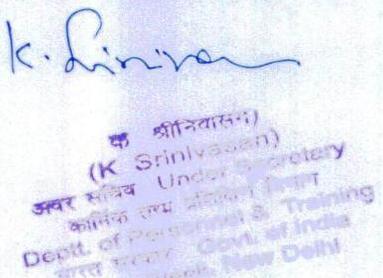 K. Srinivasan
क श्रीनिवासन)
(K Srinivasan)
अवर सचिव Under Secretary
कार्मिक तथा प्रशिक्षण विभाग
Deptt. of Personnel & Training
भारत सरकार Govt. of India
New Delhi